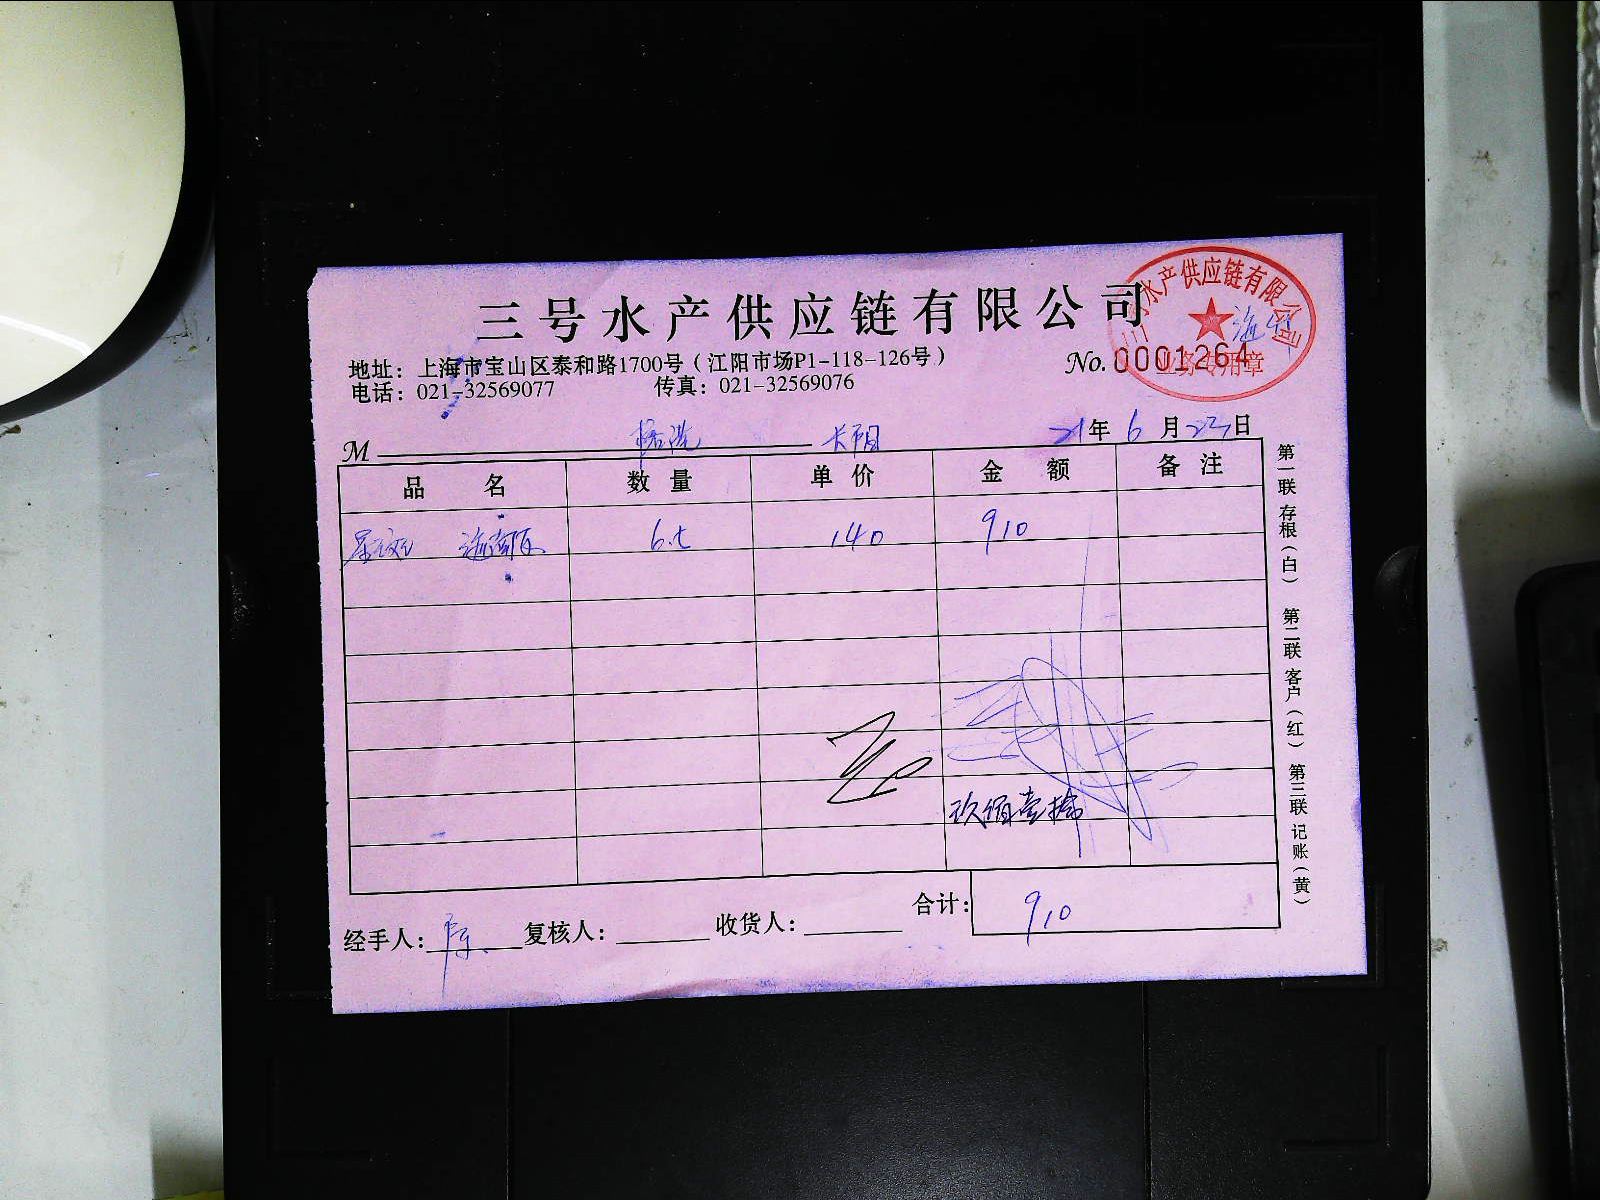 三号水产供应链有限公司
三号水产供应链有限公司
业务专用章
地址：上海市宝山区泰和路1700号（江阳市场P1-118-126号）
No. 0001264
电话：021-32569077 传真：021-32569076
M 21年 6月 23日
品名 数量 单价 金额 备注
6.5 140 910
玖佰壹拾
合计：910
经手人： 复核人： 收货人：
第一联 存根（白） 第二联 客户（红） 第三联 记账（黄）